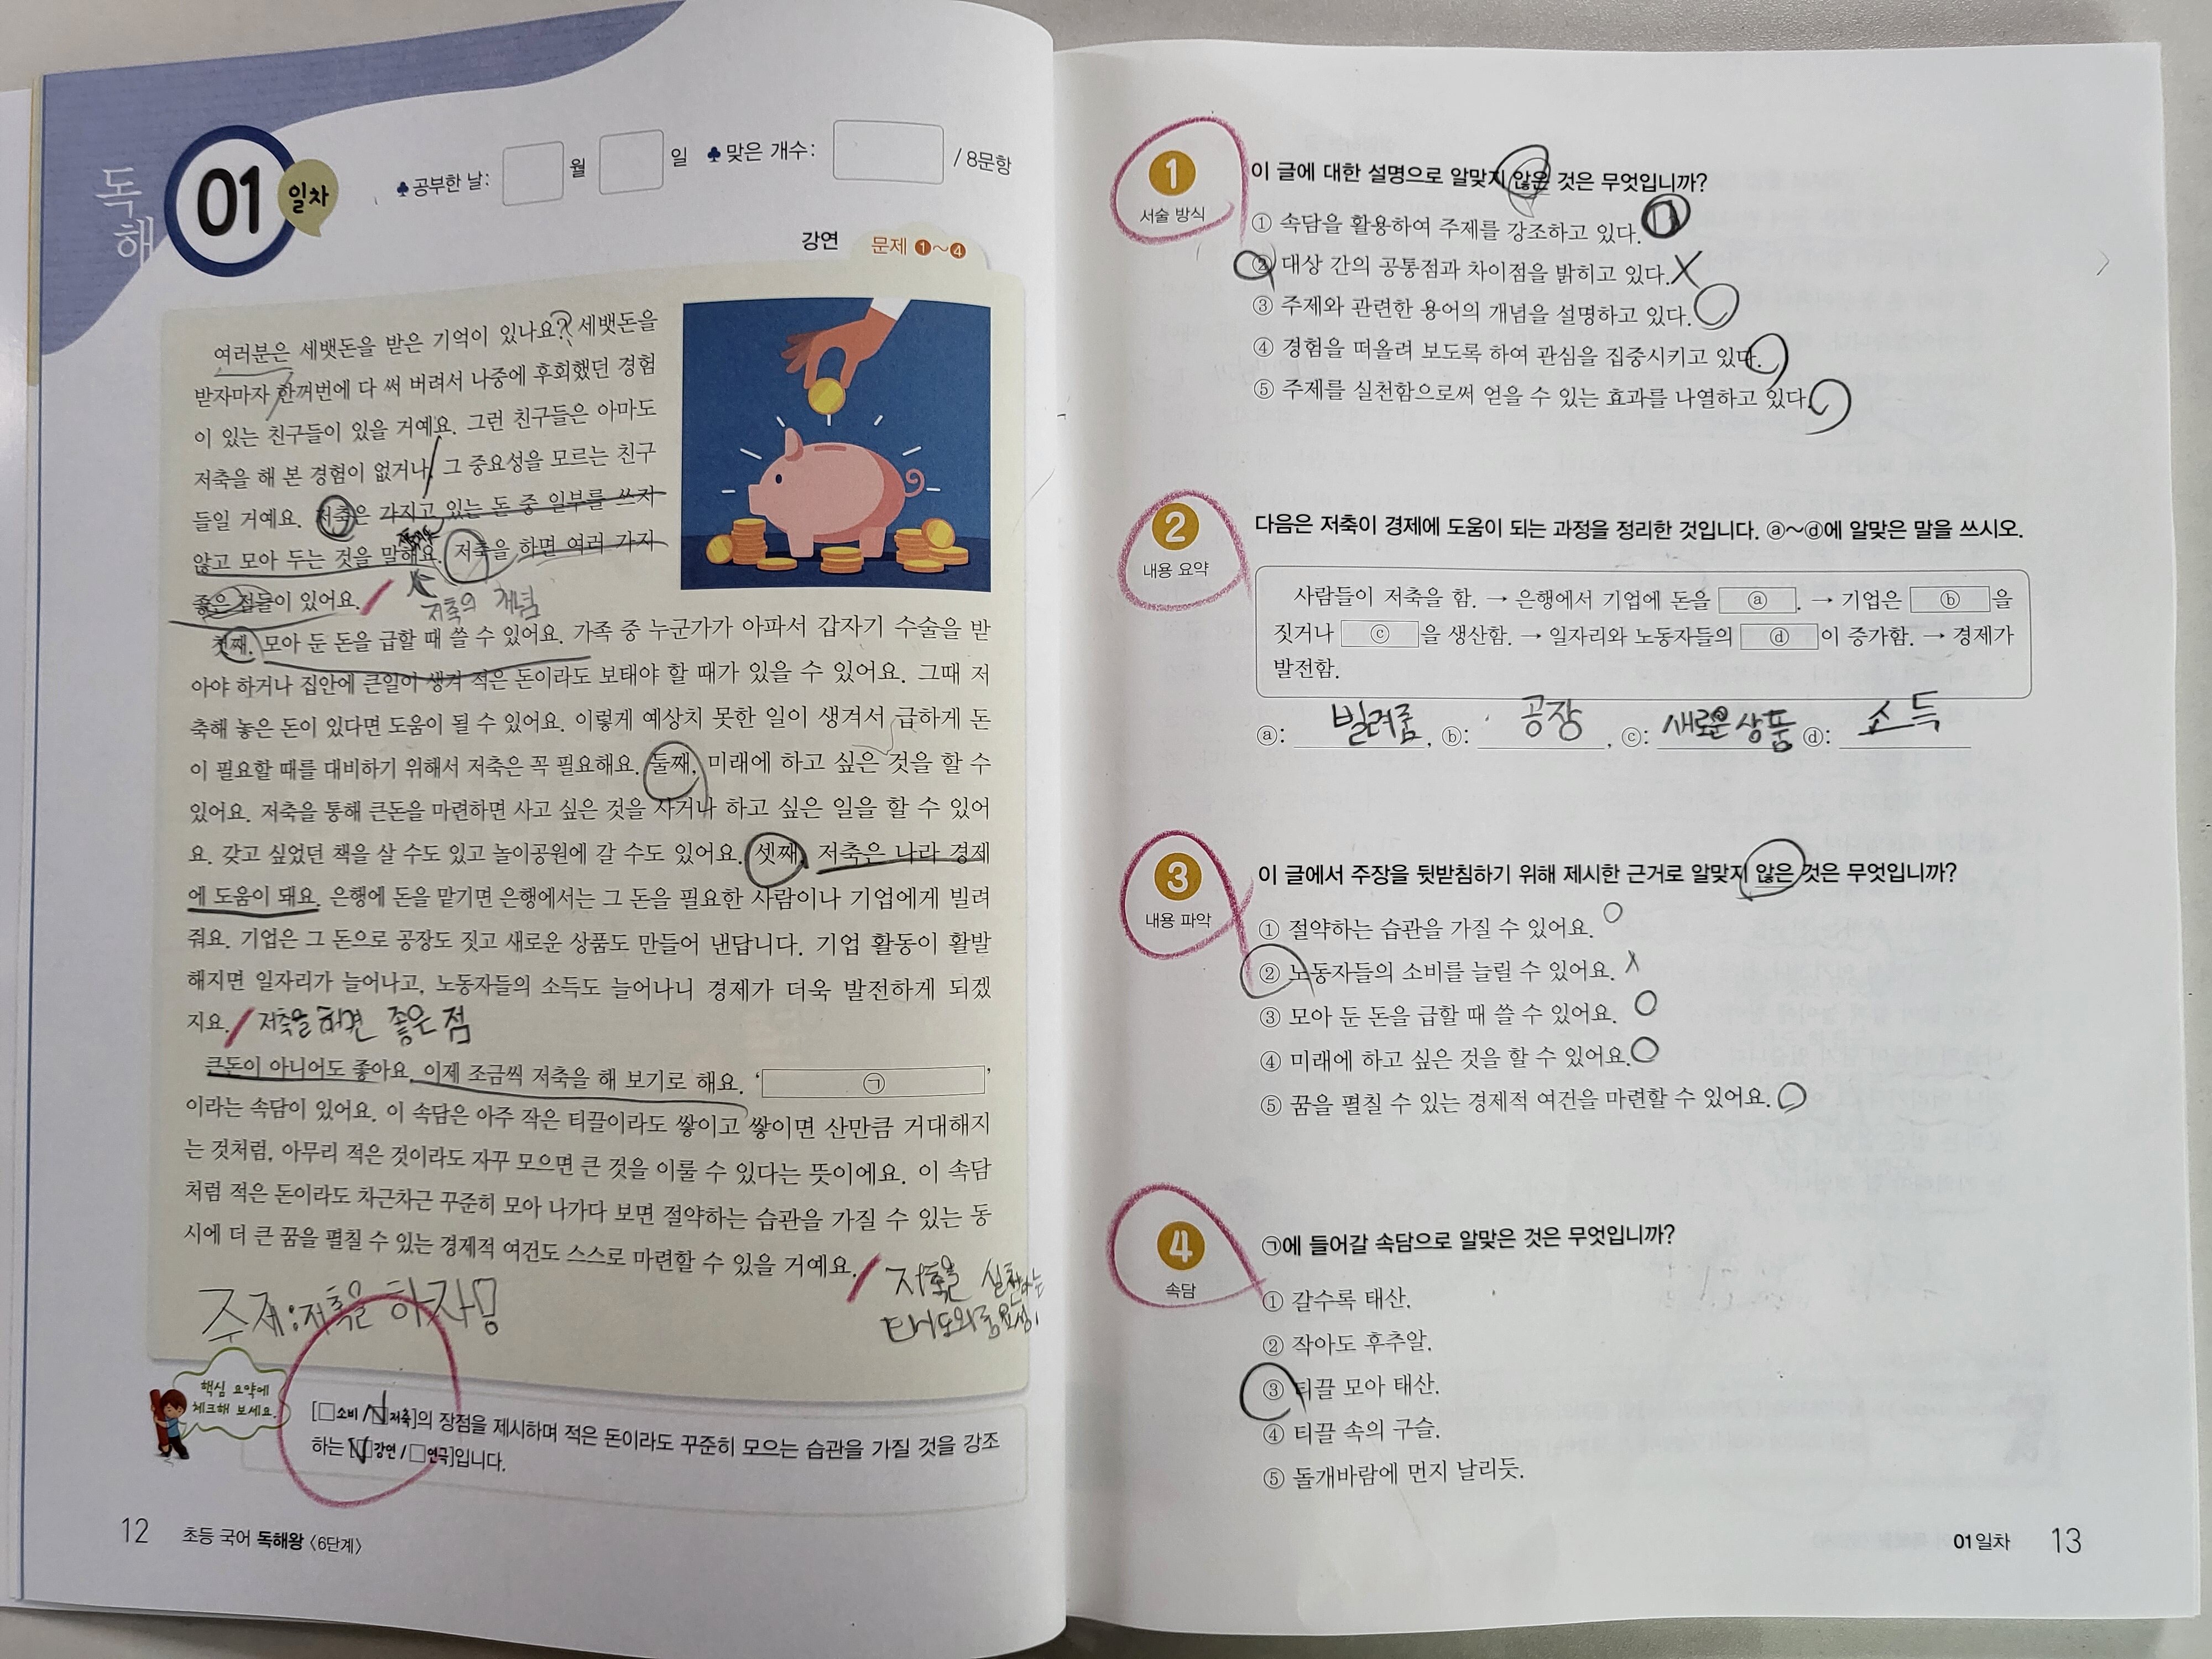 독해
01 일차
♣공부한 날: 월 일 ♣맞은 개수: / 8문항
강연 문제 ❶~❹
여러분은 세뱃돈을 받은 기억이 있나요? 세뱃돈을
받자마자 한꺼번에 다 써 버려서 나중에 후회했던 경험
이 있는 친구들이 있을 거예요. 그런 친구들은 아마도
저축을 해 본 경험이 없거나, 그 중요성을 모르는 친구
들일 거예요. 저축은 가지고 있는 돈 중 일부를 쓰지
않고 모아 두는 것을 말해요. 저축을 하면 여러 가지
좋은 점들이 있어요.
저축의 개념
첫째, 모아 둔 돈을 급할 때 쓸 수 있어요. 가족 중 누군가가 아파서 갑자기 수술을 받
아야 하거나 집안에 큰일이 생겨 적은 돈이라도 보태야 할 때가 있을 수 있어요. 그때 저
축해 놓은 돈이 있다면 도움이 될 수 있어요. 이렇게 예상치 못한 일이 생겨서 급하게 돈
이 필요할 때를 대비하기 위해서 저축은 꼭 필요해요. 둘째, 미래에 하고 싶은 것을 할 수
있어요. 저축을 통해 큰돈을 마련하면 사고 싶은 것을 사거나 하고 싶은 일을 할 수 있어
요. 갖고 싶었던 책을 살 수도 있고 놀이공원에 갈 수도 있어요. 셋째, 저축은 나라 경제
에 도움이 돼요. 은행에 돈을 맡기면 은행에서는 그 돈을 필요한 사람이나 기업에게 빌려
줘요. 기업은 그 돈으로 공장도 짓고 새로운 상품도 만들어 낸답니다. 기업 활동이 활발
해지면 일자리가 늘어나고, 노동자들의 소득도 늘어나니 경제가 더욱 발전하게 되겠
지요. 저축을 하면 좋은 점
큰돈이 아니어도 좋아요. 이제 조금씩 저축을 해 보기로 해요. ‘ ㉠ ’
이라는 속담이 있어요. 이 속담은 아주 작은 티끌이라도 쌓이고 쌓이면 산만큼 거대해지
는 것처럼, 아무리 적은 것이라도 자꾸 모으면 큰 것을 이룰 수 있다는 뜻이에요. 이 속담
처럼 적은 돈이라도 차근차근 꾸준히 모아 나가다 보면 절약하는 습관을 가질 수 있는 동
시에 더 큰 꿈을 펼칠 수 있는 경제적 여건도 스스로 마련할 수 있을 거예요.
저축을 실천하는
태도와 중요성
주제:저축을 하자!
핵심 요약에
체크해 보세요.
[□소비 / □저축]의 장점을 제시하며 적은 돈이라도 꾸준히 모으는 습관을 가질 것을 강조
하는 [□강연 / □연극]입니다.
12 초등 국어 독해왕 〈6단계〉
1 이 글에 대한 설명으로 알맞지 않은 것은 무엇입니까?
서술 방식
① 속담을 활용하여 주제를 강조하고 있다.
② 대상 간의 공통점과 차이점을 밝히고 있다. X
③ 주제와 관련한 용어의 개념을 설명하고 있다.
④ 경험을 떠올려 보도록 하여 관심을 집중시키고 있다.
⑤ 주제를 실천함으로써 얻을 수 있는 효과를 나열하고 있다.
2 다음은 저축이 경제에 도움이 되는 과정을 정리한 것입니다. ⓐ~ⓓ에 알맞은 말을 쓰시오.
내용 요약
사람들이 저축을 함. → 은행에서 기업에 돈을 ⓐ . → 기업은 ⓑ 을
짓거나 ⓒ 을 생산함. → 일자리와 노동자들의 ⓓ 이 증가함. → 경제가
발전함.
ⓐ: 빌려줌, ⓑ: 공장, ⓒ: 새로운 상품 ⓓ: 소득
3 이 글에서 주장을 뒷받침하기 위해 제시한 근거로 알맞지 않은 것은 무엇입니까?
내용 파악
① 절약하는 습관을 가질 수 있어요. O
② 노동자들의 소비를 늘릴 수 있어요. X
③ 모아 둔 돈을 급할 때 쓸 수 있어요. O
④ 미래에 하고 싶은 것을 할 수 있어요. O
⑤ 꿈을 펼칠 수 있는 경제적 여건을 마련할 수 있어요. O
4 ㉠에 들어갈 속담으로 알맞은 것은 무엇입니까?
속담
① 갈수록 태산.
② 작아도 후추알.
③ 티끌 모아 태산.
④ 티끌 속의 구슬.
⑤ 돌개바람에 먼지 날리듯.
01일차 13